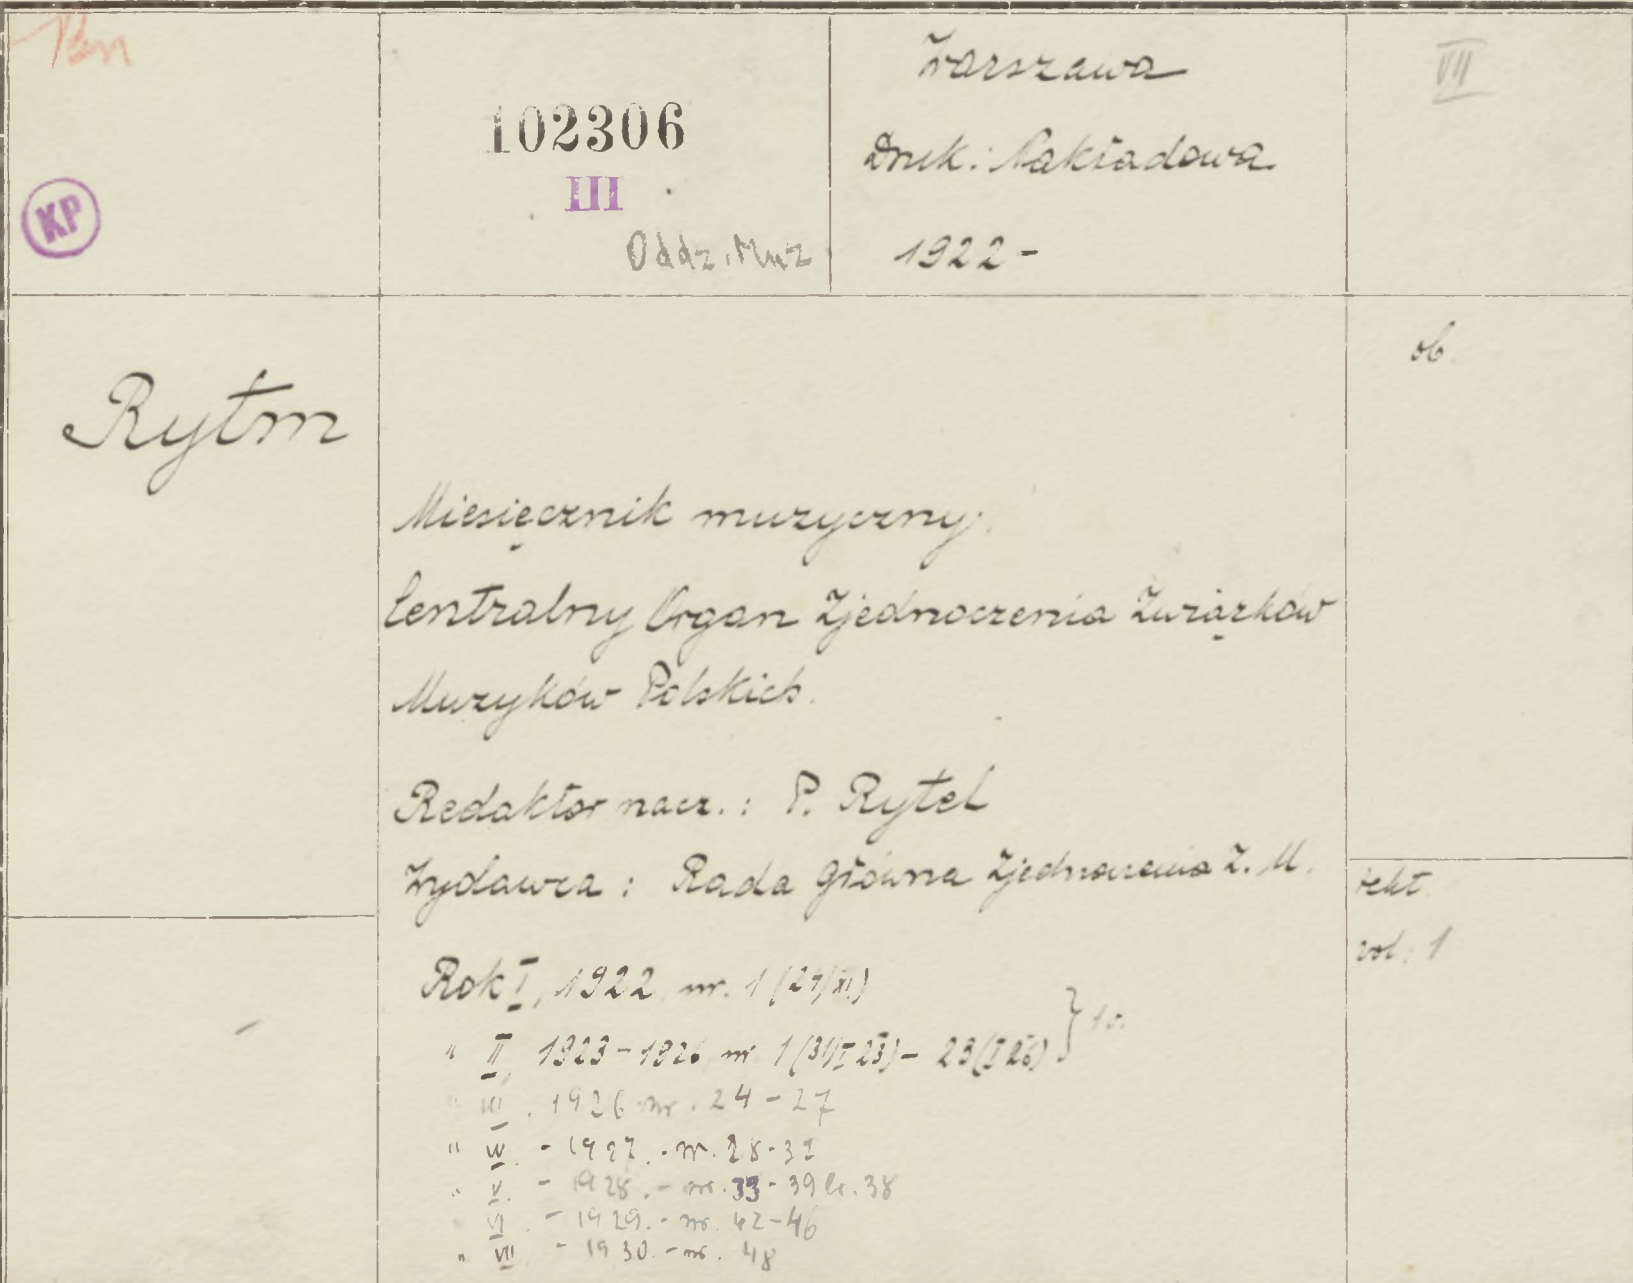 102306
III
Oddz. Muz
KP
Warszawa
Druk: Nakładowa
1922 -
VII
ob.
Rytm
Miesięcznik muzyczny.
Centralny Organ Zjednoczenia Związków
Muzyków Polskich.
Redaktor nacz.: P. Rytel
Wydawca: Rada główna Zjednoczenia Z. M.
Rok I, 1922, nr. 1 (27/XI)
" II, 1923-1926 nr 1 (31/I 23) - 23 (I 26) } 1 v.
" III. 1926 nr. 24-27
" IV. - 1927. - nr. 28-32
" V. - 1928. - nr. 33-39 br. 38
" VI - 1929. - nr. 42-46
" VII - 1930. - nr. 48
tekt.
vol: 1